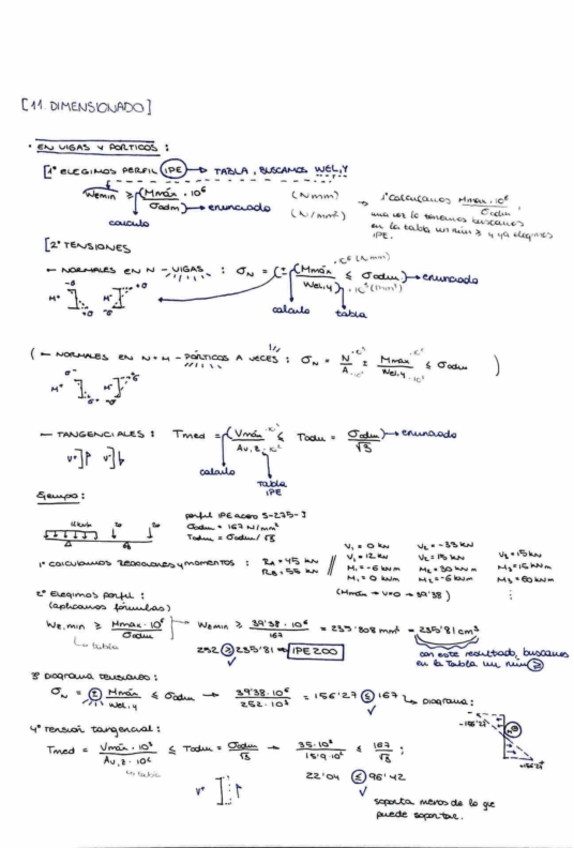 [11. DIMENSIONADO]
• EN VIGAS Y PÓRTICOS :
[1° ELEGIMOS PERFIL (IPE) → TABLA, BUSCAMOS WEL,Y
Wemin ≥ (Mmáx · 10⁶ / σadm) → enunciado
(Nmm)
(N/mm²)
calculo
→ 1° calculamos Mmax · 10⁶ / σadm,
una vez lo tenemos buscamos
en la tabla un núm ≥ y ya elegimos
IPE.
[2° TENSIONES
← NORMALES EN N - VIGAS : σN = (± (Mmáx / Wel,y) ≤ σadm) → enunciado
·10⁶ (Nmm)
·10³ (mm³)
-σ +σ
M⁺ M⁻
+σ -σ
calculo tabla
(← NORMALES EN N+M - PÓRTICOS A VECES : σN = N / A ± Mmax / Wel,y ≤ σadm )
M⁺ M⁻
← TANGENCIALES : Tmed = (Vmáx · 10³ / Av,z · 10²) ≤ Tadm = σadm / √3 → enunciado
V⁺ V⁻
calculo
TABLA
IPE
Ejemplo :
perfil IPE acero S-275-J
σadm = 167 N/mm²
Tadm = σadm / √3
12 kN/m
1° calculamos reacciones y momentos : RA = 45 kN
RB = 55 kN
V₁ = 0 kN
V₁ = 12 kN
M₁ = -6 kNm
M₁ = 0 kNm
V₂ = -33 kN
V₂ = 15 kN
M₂ = 30 kNm
M₂ = -6 kNm
V₃ = 15 kN
M₃ = 15 kNm
(Mmáx → V=0 → 39'38)
2° Elegimos perfil :
(aplicamos fórmulas)
We,min ≥ Mmax · 10⁶ / σadm
Wemin ≥ 39'38 · 10⁶ / 167 = 235'808 mm³ = 235'81 cm³
↳ tabla
252 ≥ 235'81 → IPE 200
con este resultado, buscamos
en la tabla un núm ≥
3° Diagrama tensiones :
σN = ± Mmáx / Wel,y ≤ σadm → 39'38 · 10⁶ / 252 · 10³ = 156'27 ≤ 167 ↳ Diagrama :
-156'27
+156'27
4° Tensión tangencial :
Tmed = Vmáx · 10³ / Av,z · 10² ≤ Tadm = σadm / √3 → 35 · 10³ / 15'9 · 10² ≤ 167 / √3 ;
tabla
22'04 ≤ 96'42
V⁺
soporta menos de lo qe
puede soportar.